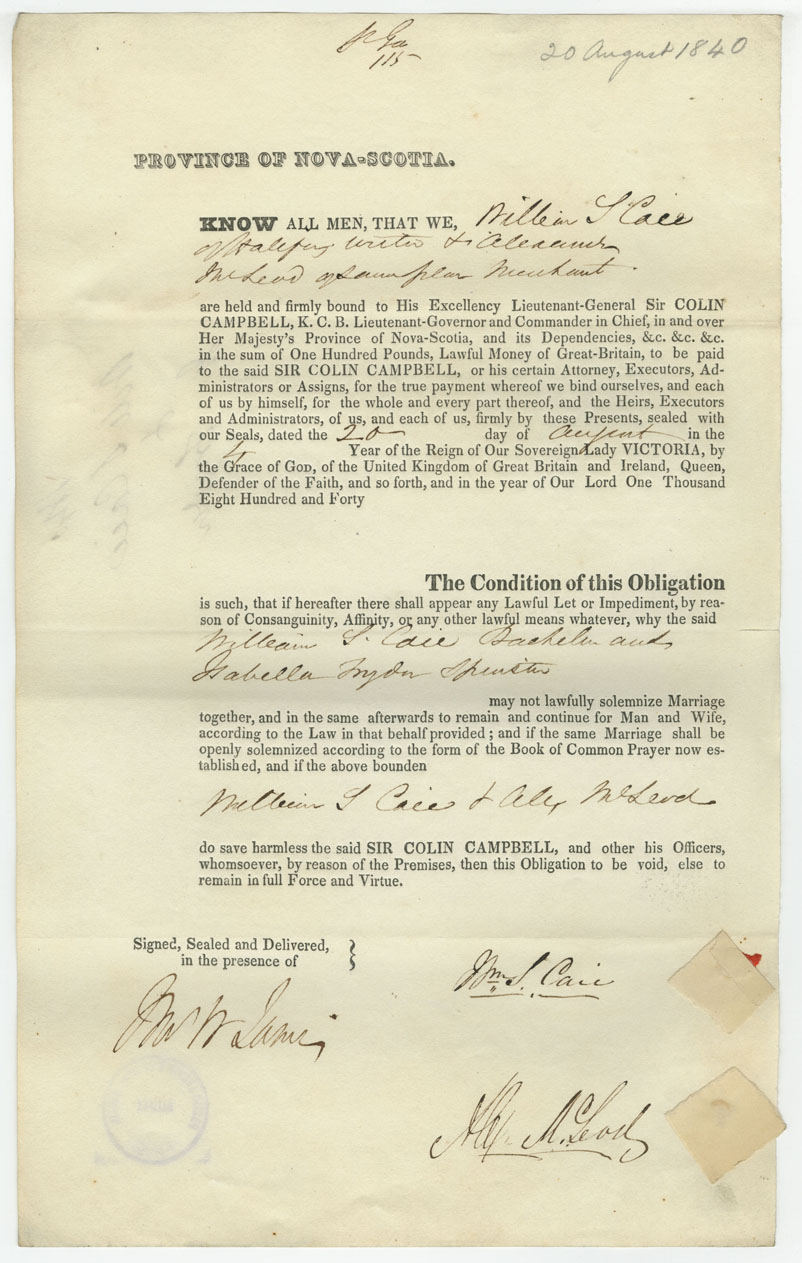 115
20 August 1840
PROVINCE OF NOVA-SCOTIA.
KNOW ALL MEN, THAT WE, William S Caie
of Halifax writer & Alexander
McLeod of same place Merchant.
are held and firmly bound to His Excellency Lieutenant-General Sir COLIN
CAMPBELL, K. C. B. Lieutenant-Governor and Commander in Chief, in and over
Her Majesty's Province of Nova-Scotia, and its Dependencies, &c. &c. &c.
in the sum of One Hundred Pounds, Lawful Money of Great-Britain, to be paid
to the said SIR COLIN CAMPBELL, or his certain Attorney, Executors, Ad-
ministrators or Assigns, for the true payment whereof we bind ourselves, and each
of us by himself, for the whole and every part thereof, and the Heirs, Executors
and Administrators, of us, and each of us, firmly by these Presents, sealed with
our Seals, dated the 20 day of August in the
4 Year of the Reign of Our Sovereign Lady VICTORIA, by
the Grace of GOD, of the United Kingdom of Great Britain and Ireland, Queen,
Defender of the Faith, and so forth, and in the year of Our Lord One Thousand
Eight Hundred and Forty
The Condition of this Obligation
is such, that if hereafter there shall appear any Lawful Let or Impediment, by rea-
son of Consanguinity, Affinity, or any other lawful means whatever, why the said
William S. Caie Bachelor and
Isabella Spinster
may not lawfully solemnize Marriage
together, and in the same afterwards to remain and continue for Man and Wife,
according to the Law in that behalf provided; and if the same Marriage shall be
openly solemnized according to the form of the Book of Common Prayer now es-
tablished, and if the above bounden
William S Caie & Alex McLeod
do save harmless the said SIR COLIN CAMPBELL, and other his Officers,
whomsoever, by reason of the Premises, then this Obligation to be void, else to
remain in full Force and Virtue.
Signed, Sealed and Delivered,
in the presence of
Wm S. Caie
W
Alex McLeod